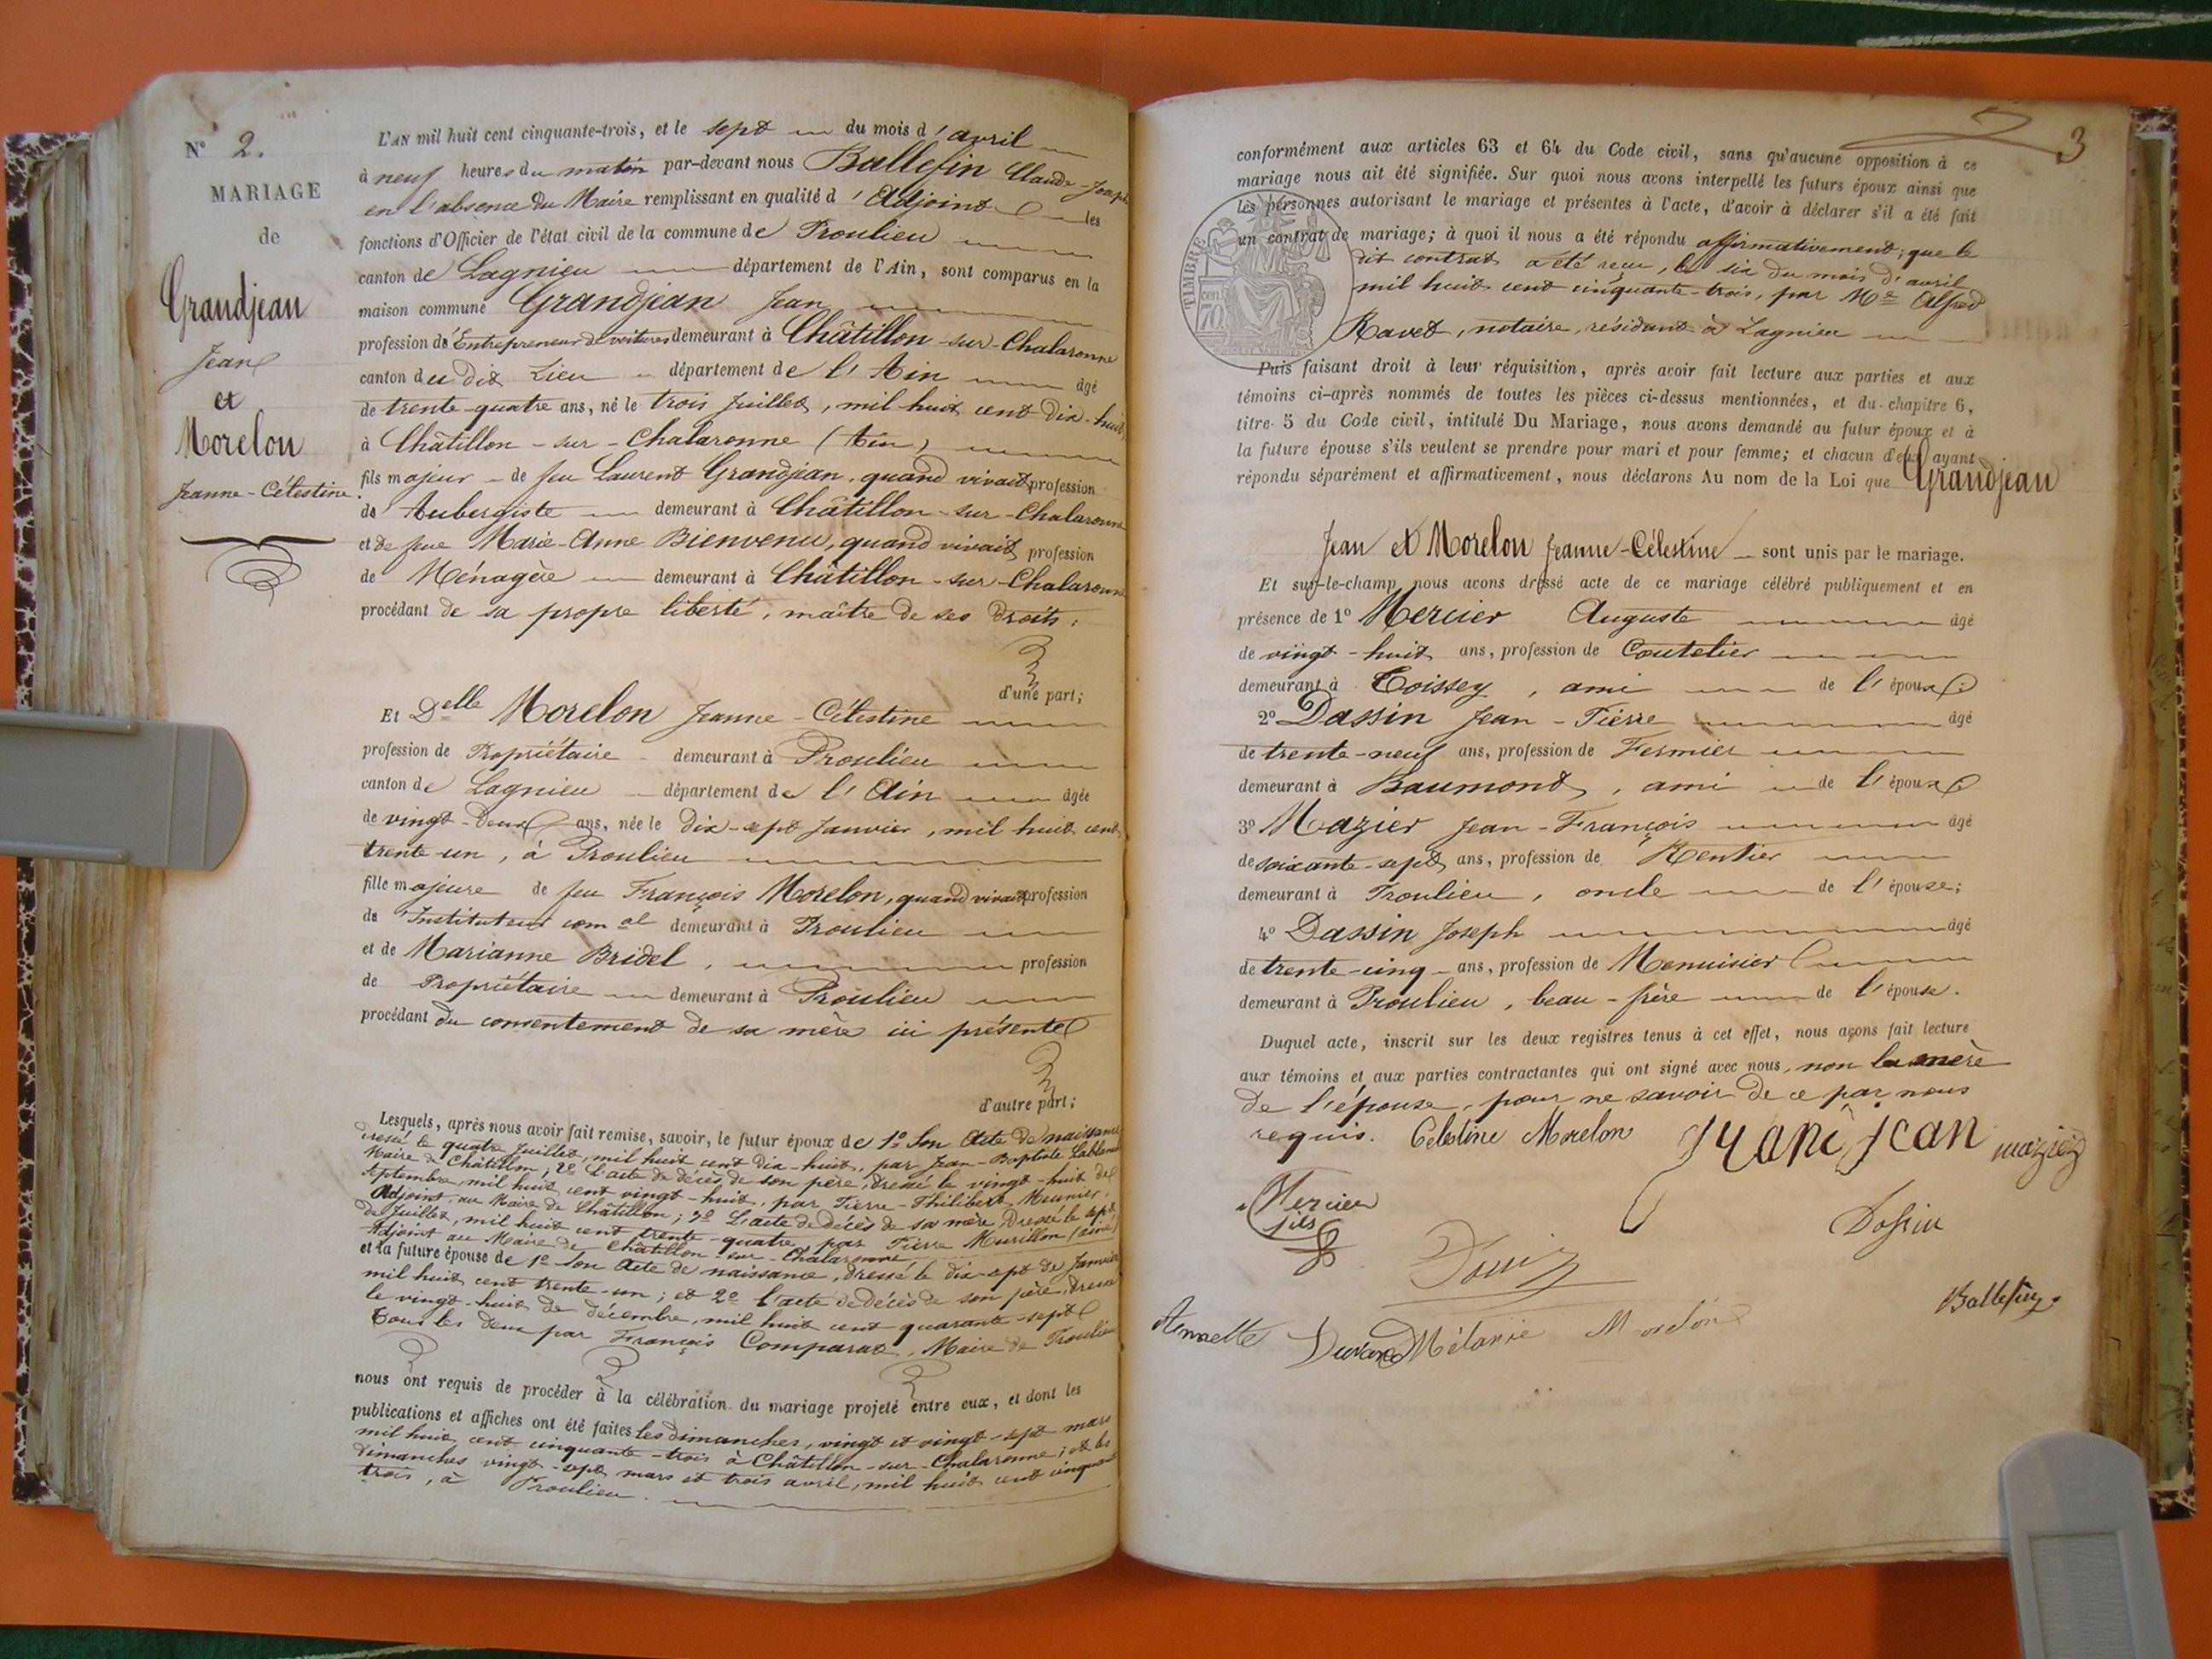 N° 2.
MARIAGE
de
Grandjean
Jean
et
Morelon
Jeanne-Célestine.
L'AN mil huit cent cinquante-trois, et le sept du mois d'avril
à neuf heures du matin par-devant nous Ballefin Claude-Joseph
en l'absence du Maire remplissant en qualité d'Adjoint les
fonctions d'Officier de l'état civil de la commune de Proulieu
canton de Lagnieu département de l'Ain, sont comparus en la
maison commune Grandjean Jean
profession d'Entrepreneur de voitures demeurant à Châtillon-sur-Chalaronne
canton du dit Lieu département de l'Ain âgé
de trente-quatre ans, né le trois Juillet, mil huit cent dix-huit,
à Châtillon-sur-Chalaronne (Ain)
fils majeur de feu Laurent Grandjean, quand vivait profession
d'Aubergiste demeurant à Châtillon-sur-Chalaronne
et de feue Marie-Anne Bienvenu, quand vivait profession
de Ménagère demeurant à Châtillon-sur-Chalaronne
procédant de sa propre liberté, maître de ses droits,
d'une part;
Et Delle Morelon Jeanne-Célestine
profession de Propriétaire demeurant à Proulieu
canton de Lagnieu département de l'Ain âgée
de vingt-deux ans, née le dix-sept Janvier, mil huit cent
trente-un, à Proulieu
fille majeure de feu François Morelon, quand vivait profession
d'Instituteur comal demeurant à Proulieu
et de Marianne Bridel, profession
de Propriétaire demeurant à Proulieu
procédant du consentement de sa mère ici présente
d'autre part;
Lesquels, après nous avoir fait remise, savoir, le futur époux de 1° Son Acte de naissance
dressé le quatre Juillet, mil huit cent dix-huit, par Jean-Baptiste
Maire de Châtillon; 2° L'acte de décès de son père, dressé le vingt-huit de
Septembre, mil huit cent vingt-huit, par Pierre-Philibert Meunier,
Adjoint au Maire de Châtillon; 3° L'acte de décès de sa mère, dressé le sept
de Juillet, mil huit cent trente-quatre, par Pierre Murillon (ainé)
Adjoint au Maire de Châtillon-sur-Chalaronne,
et la future épouse de 1° Son Acte de naissance, dressé le dix-sept de Janvier
mil huit cent trente-un; et 2° l'acte de décès de son père, dressé
le vingt-huit de décembre, mil huit cent quarante-sept
Tous les deux par François Comparat, Maire de Proulieu
nous ont requis de procéder à la célébration du mariage projeté entre eux, et dont les
publications et affiches ont été faites les dimanches, vingt et vingt-sept mars
mil huit cent cinquante-trois à Châtillon-sur-Chalaronne; et les
dimanches vingt-sept mars et trois avril, mil huit cent cinquante
trois, à Proulieu.
3
conformément aux articles 63 et 64 du Code civil, sans qu'aucune opposition à ce
mariage nous ait été signifiée. Sur quoi nous avons interpellé les futurs époux ainsi que
les personnes autorisant le mariage et présentes à l'acte, d'avoir à déclarer s'il a été fait
un contrat de mariage; à quoi il nous a été répondu affirmativement; que le
dit contrat a été reçu, le six du mois d'avril
mil huit cent cinquante-trois, par Me Alfred
Ravet, notaire, résidant à Lagnieu
TIMBRE
70 cent
Puis faisant droit à leur réquisition, après avoir fait lecture aux parties et aux
témoins ci-après nommés de toutes les pièces ci-dessus mentionnées, et du chapitre 6,
titre 5 du Code civil, intitulé Du Mariage, nous avons demandé au futur époux et à
la future épouse s'ils veulent se prendre pour mari et pour femme; et chacun d'eux ayant
répondu séparément et affirmativement, nous déclarons Au nom de la Loi que Grandjean
Jean et Morelon Jeanne-Célestine sont unis par le mariage.
Et sur-le-champ nous avons dressé acte de ce mariage célébré publiquement et en
présence de 1° Mercier Auguste âgé
de vingt-huit ans, profession de Coutelier
demeurant à Toissey, ami de l'époux;
2° Dassin Jean-Pierre âgé
de trente-neuf ans, profession de Fermier
demeurant à Baumont, ami de l'époux
3° Mazier Jean-François âgé
de soixante-sept ans, profession de Rentier
demeurant à Proulieu, oncle de l'épouse;
4° Dassin Joseph âgé
de trente-cinq ans, profession de Menuisier
demeurant à Proulieu, beau-frère de l'épouse.
Duquel acte, inscrit sur les deux registres tenus à cet effet, nous avons fait lecture
aux témoins et aux parties contractantes qui ont signé avec nous, non la mère
de l'épouse, pour ne savoir de ce par nous
requis. Celestine Morelon Grandjean mazier
Mercier
fils
Dassin
Ballefin
Annette Durand Mélanie Morelon